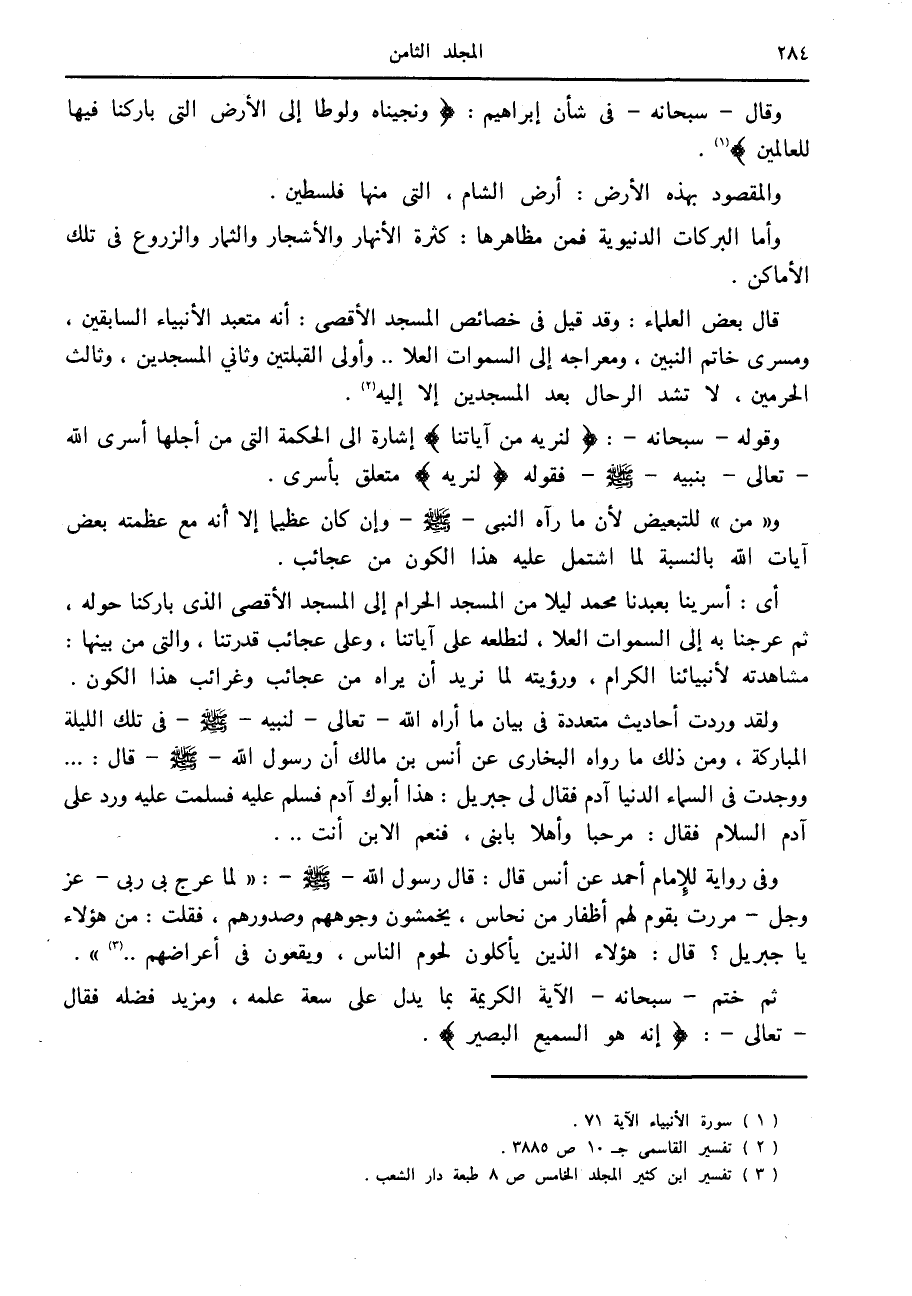 ٢٨٤ المجلد الثامن
وقال – سبحانه – فى شأن إبراهيم : ﴿ ونجيناه ولوطا إلى الأرض التى باركنا فيها
للعالمين ﴾(١) .
والمقصود بهذه الأرض : أرض الشام ، التى منها فلسطين .
وأما البركات الدنيوية فمن مظاهرها : كثرة الأنهار والأشجار والثمار والزروع فى تلك
الأماكن .
قال بعض العلماء : وقد قيل فى خصائص المسجد الأقصى : أنه متعبد الأنبياء السابقين ،
ومسرى خاتم النبين ، ومعراجه إلى السموات العلا .. وأولى القبلتين وثاني المسجدين ، وثالث
الحرمين ، لا تشد الرحال بعد المسجدين إلا إليه(٢) .
وقوله – سبحانه – : ﴿ لنريه من آياتنا ﴾ إشارة الى الحكمة التى من أجلها أسرى الله
– تعالى – بنبيه – ﷺ – فقوله ﴿ لنريه ﴾ متعلق بأسرى .
و« من » للتبعيض لأن ما رآه النبى – ﷺ – وإن كان عظيما إلا أنه مع عظمته بعض
آيات الله بالنسبة لما اشتمل عليه هذا الكون من عجائب .
أى : أسرينا بعبدنا محمد ليلا من المسجد الحرام إلى المسجد الأقصى الذى باركنا حوله ،
ثم عرجنا به إلى السموات العلا ، لنطلعه على آياتنا ، وعلى عجائب قدرتنا ، والتى من بينها :
مشاهدته لأنبيائنا الكرام ، ورؤيته لما نريد أن يراه من عجائب وغرائب هذا الكون .
ولقد وردت أحاديث متعددة فى بيان ما أراه الله – تعالى – لنبيه – ﷺ – فى تلك الليلة
المباركة ، ومن ذلك ما رواه البخارى عن أنس بن مالك أن رسول الله – ﷺ – قال : ...
ووجدت فى السماء الدنيا آدم فقال لى جبريل : هذا أبوك آدم فسلم عليه فسلمت عليه ورد على
آدم السلام فقال : مرحبا وأهلا بابنى ، فنعم الابن أنت .. .
وفى رواية للإمام أحمد عن أنس قال : قال رسول الله – ﷺ – : « لما عرج بى ربى – عز
وجل – مررت بقوم لهم أظفار من نحاس ، يخمشون وجوههم وصدورهم ، فقلت : من هؤلاء
يا جبريل ؟ قال : هؤلاء الذين يأكلون لحوم الناس ، ويقعون فى أعراضهم ..(٣) » .
ثم ختم – سبحانه – الآية الكريمة بما يدل على سعة علمه ، ومزيد فضله فقال
– تعالى – : ﴿ إنه هو السميع البصير ﴾ .
( ١ ) سورة الأنبياء الآية ٧١ .
( ٢ ) تفسير القاسمى جـ ١٠ ص ٣٨٨٥ .
( ٣ ) تفسير ابن كثير المجلد الخامس ص ٨ طبعة دار الشعب .